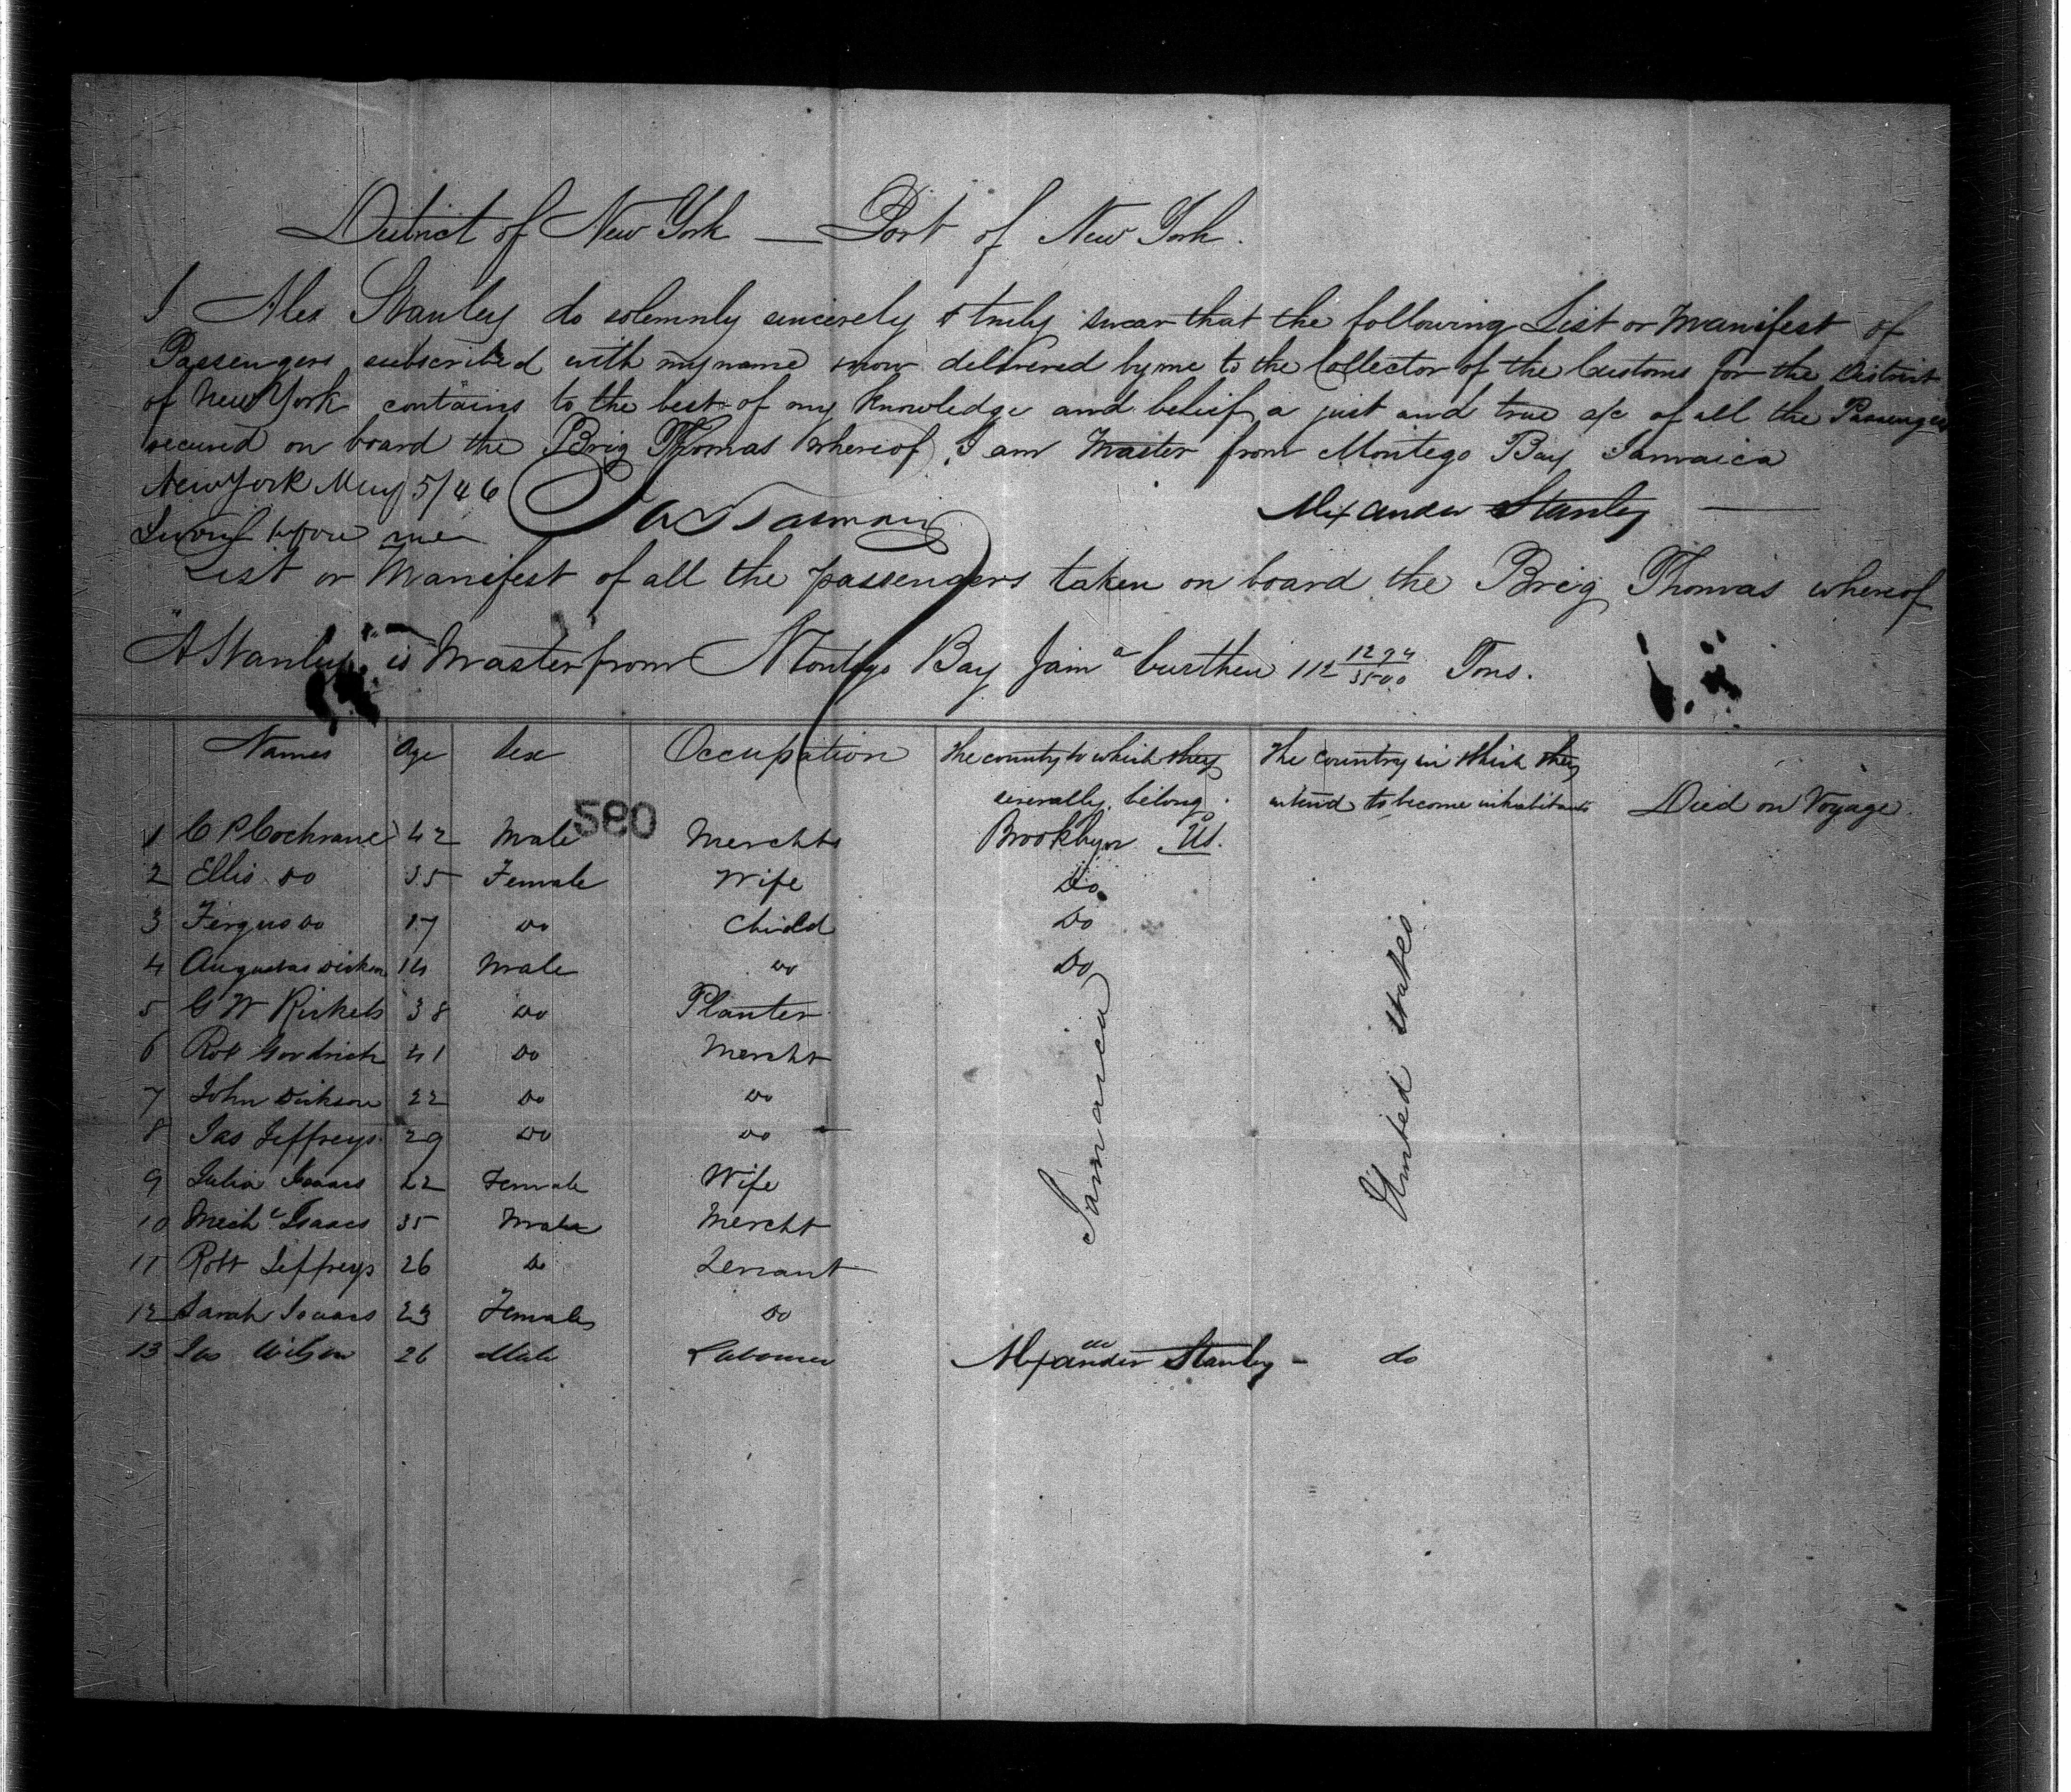 District of New York — Port of New York.
I Alex Stanley do solemnly sincerely & truly swear that the following List or Manifest of
Passengers subscribed with my name & now delivered by me to the Collector of the Customs for the District
of New York contains to the best of my knowledge and belief a just and true a/c of all the Passengers
received on board the Brig Thomas whereof I am Master from Montego Bay Jamaica
New York May 5/46
Alexander Stanley
Sworn before me
List or Manifest of all the passengers taken on board the Brig Thomas whereof
A Stanley is Master from Montego Bay Jamª burthen 112 1294/3500 Tons.
Names Age Sex Occupation The country to which they severally belong The country in which they intend to become inhabitants Died on Voyage
580
1 C P Cochrane 42 Male Merchts Brooklyn US.
2 Ellis Do 35 Female Wife Do
3 Fergus Do 17 Do Child Do
4 Augustus Dickson 14 Male Do Do
5 G W Rickets 38 Do Planter
6 Rob Goodrich 41 Do Mercht
7 John Dickson 22 Do Do
8 Jas Jeffreys 29 Do Do
9 Julia Isaacs 22 Female Wife
10 Michl Isaacs 35 Male Mercht
11 Robt Jeffreys 26 Do Servant
12 Sarah Isaacs 23 Female Do
Jamaica
United States
13 Jas Wilson 26 Male Labourer do do
Alexander Stanley